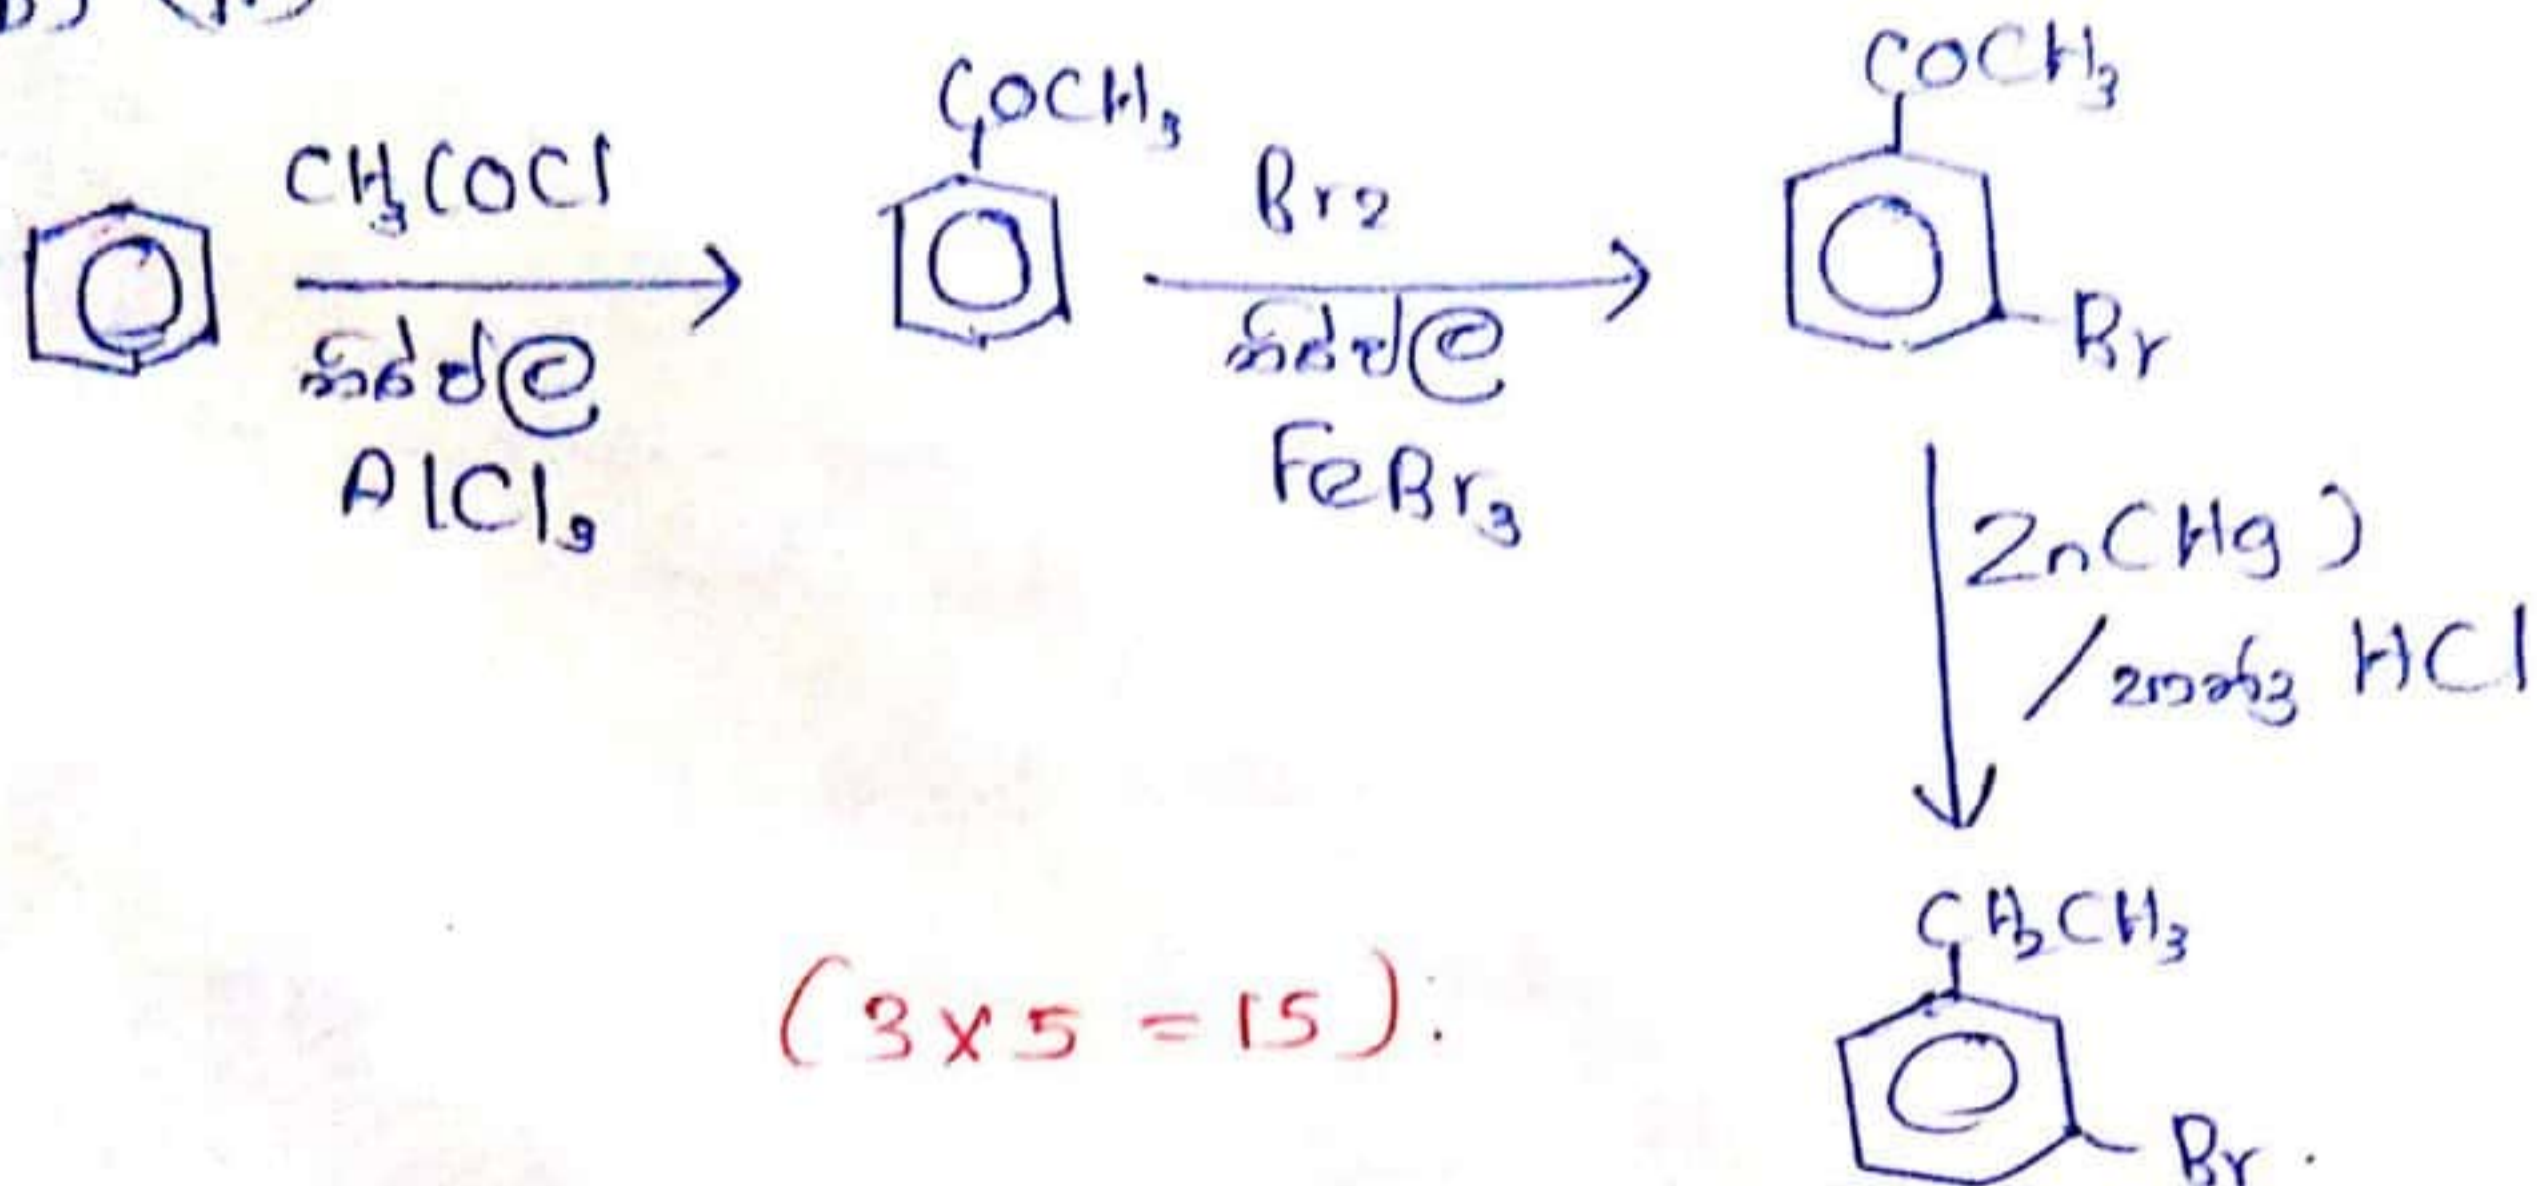 CH₃COCl
නිර්ජල
AlCl₃
COCH₃
Br₂
නිර්ජල
FeBr₃
COCH₃
Br
Zn(Hg)
/සාන්ද්‍ර HCl
CH₂CH₃
Br.
(3×5 = 15).